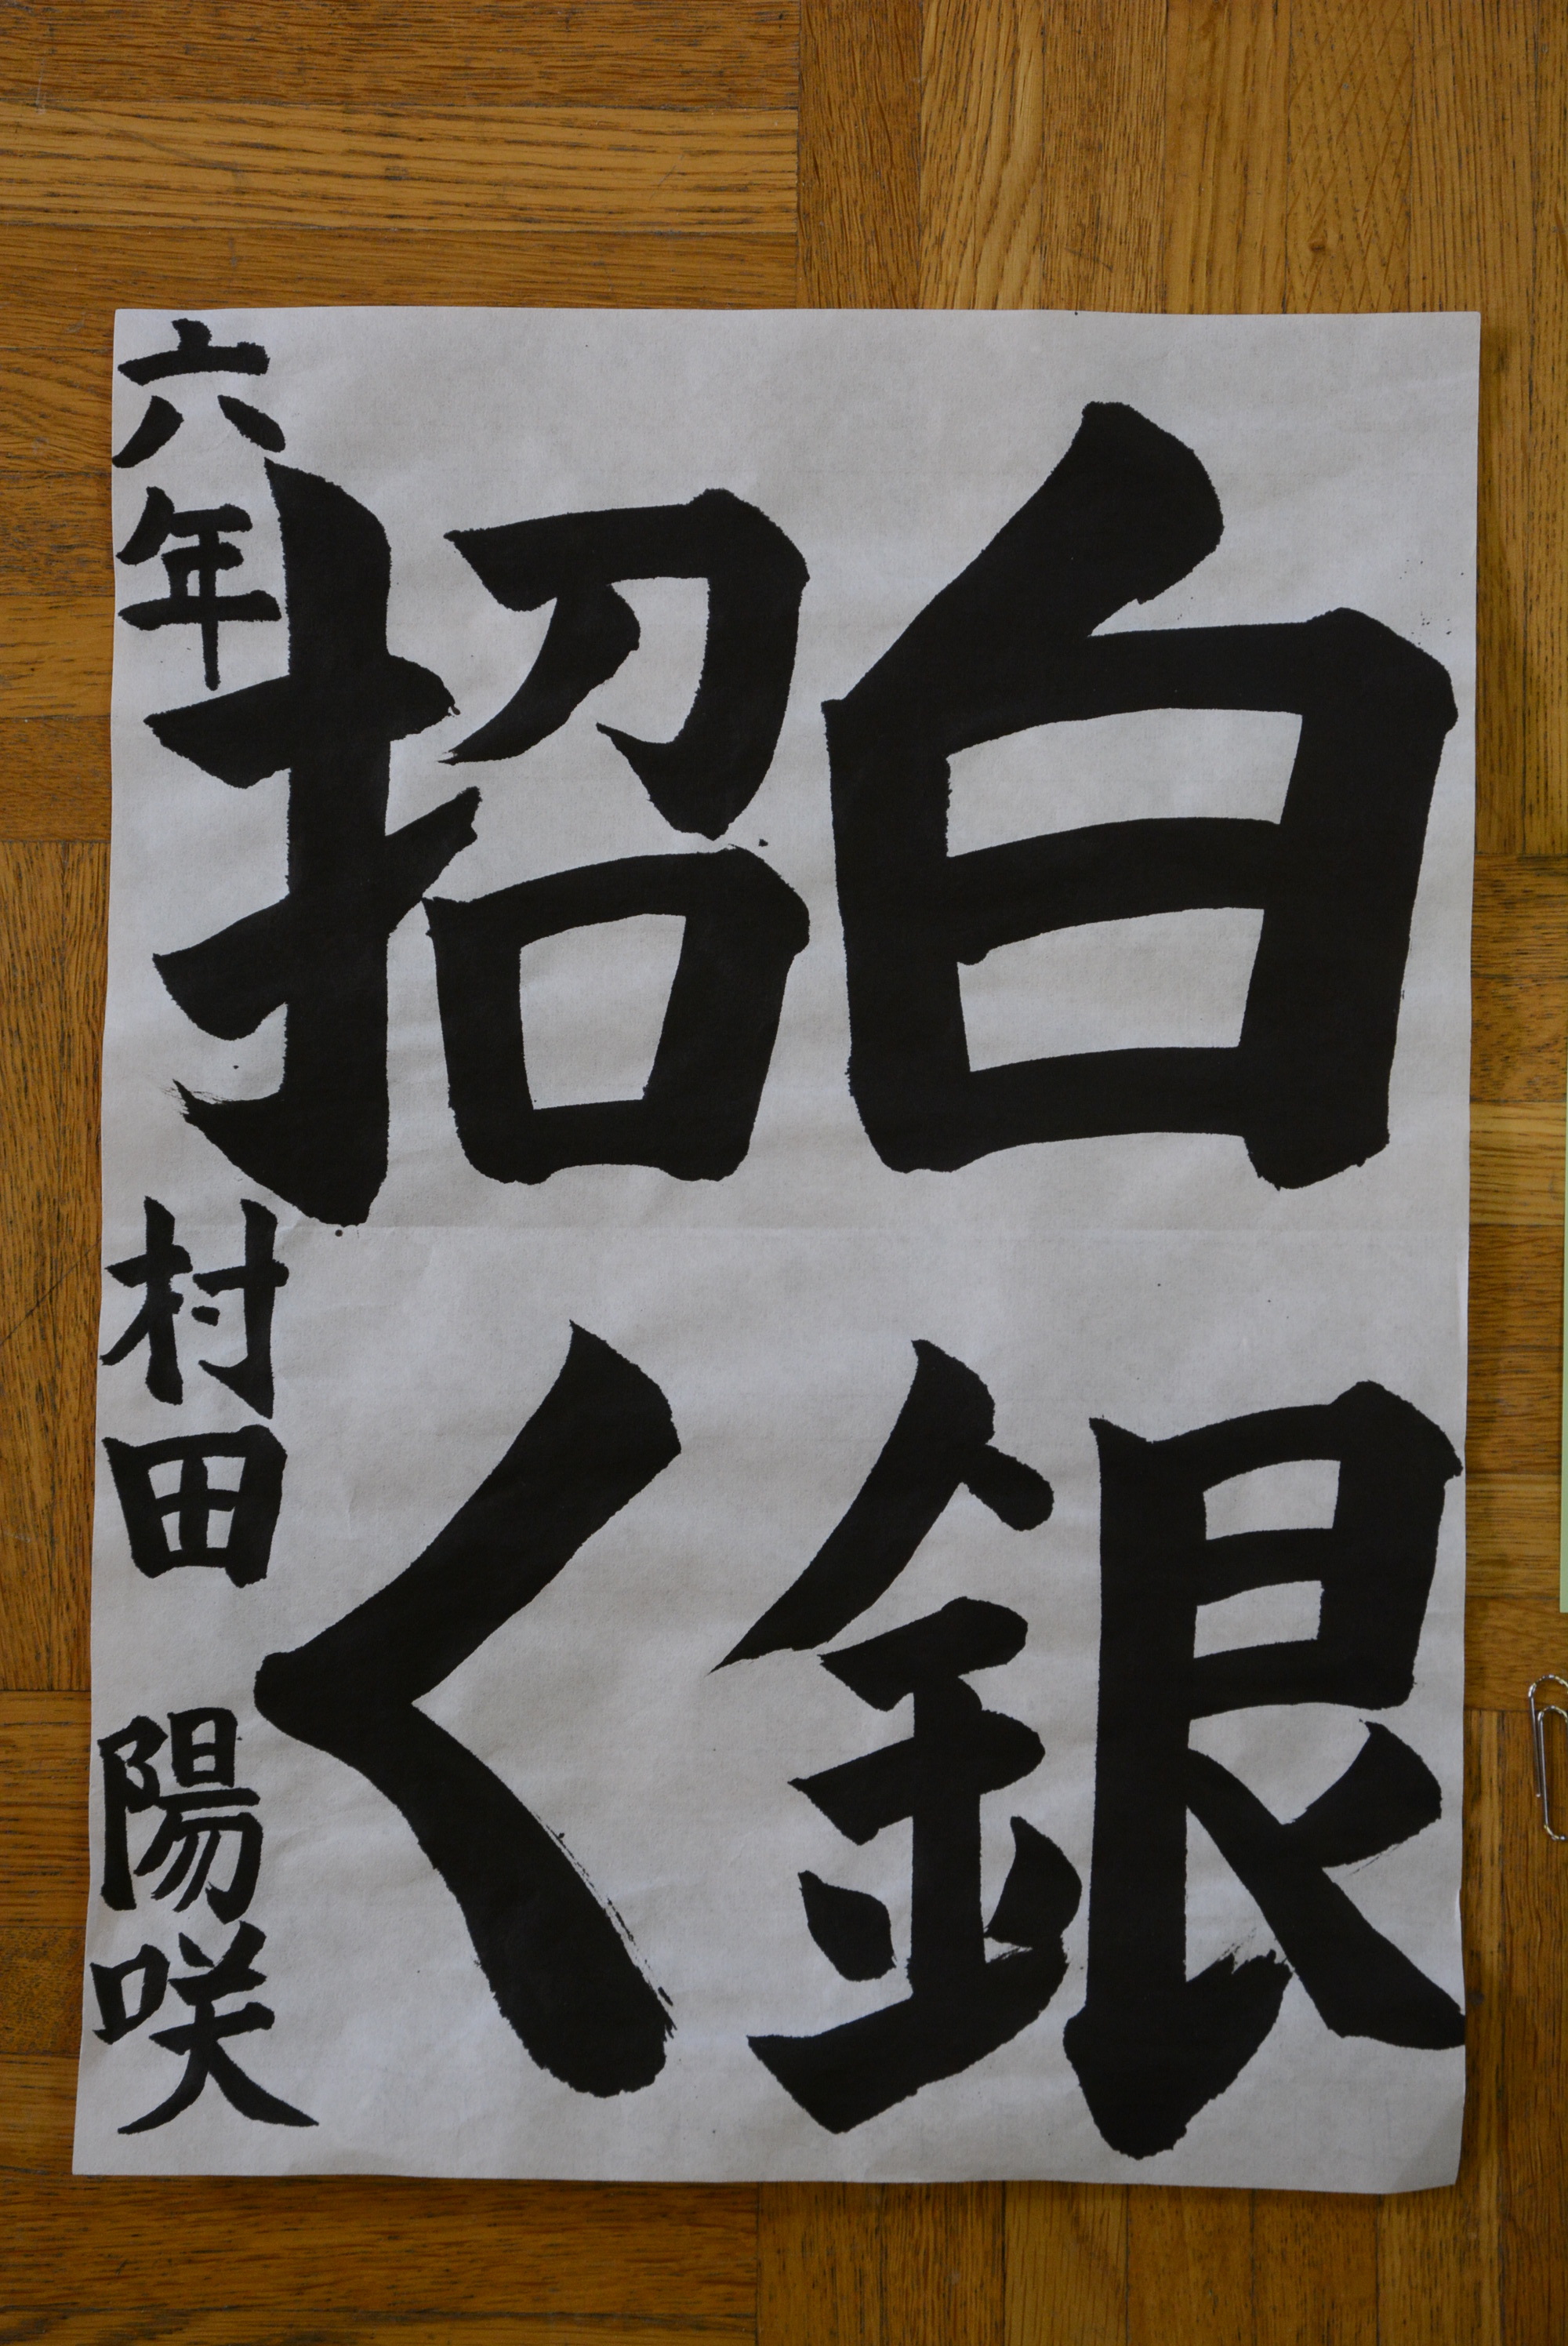 白銀
招く
六年 村田 陽咲